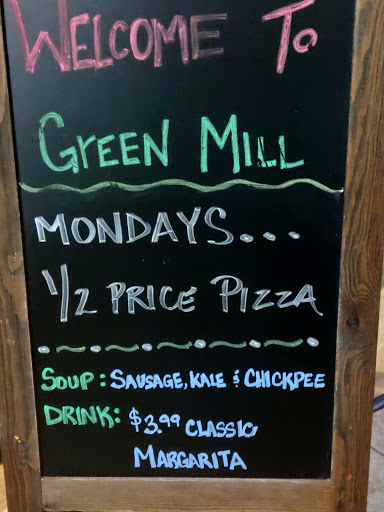 WELCOME TO
GREEN MILL
MONDAYS...
1/2 PRICE PIZZA
SOUP: SAUSAGE, KALE & CHICKPEE
DRINK: $3.99 CLASSIC
MARGARITA